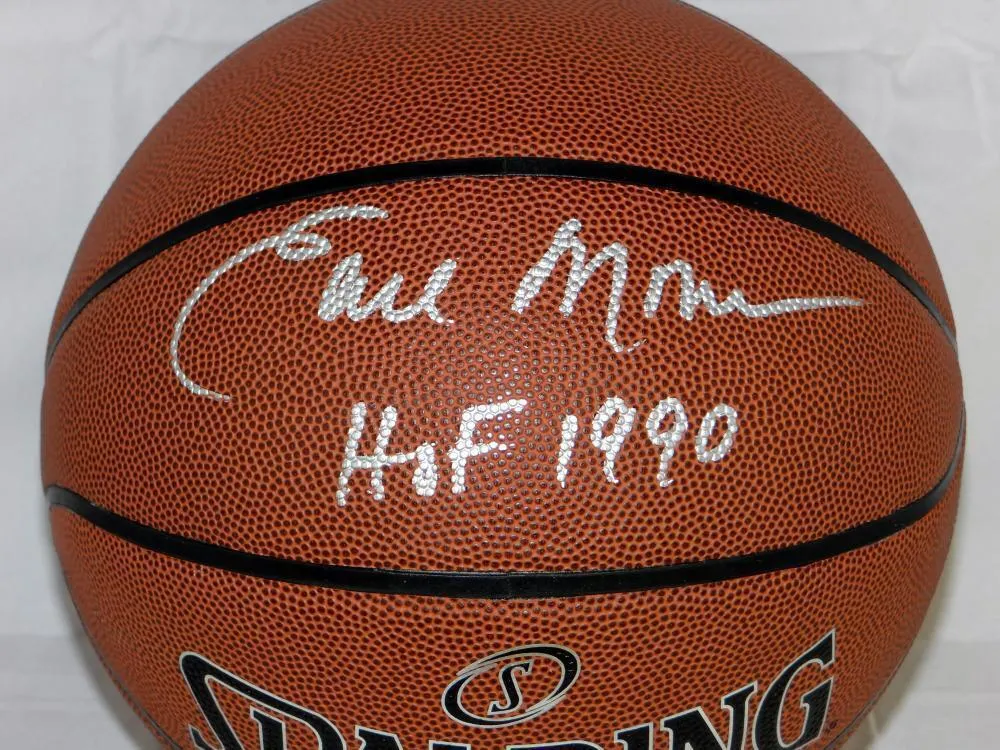 Earl Monroe
HOF 1990
S
SPALDING